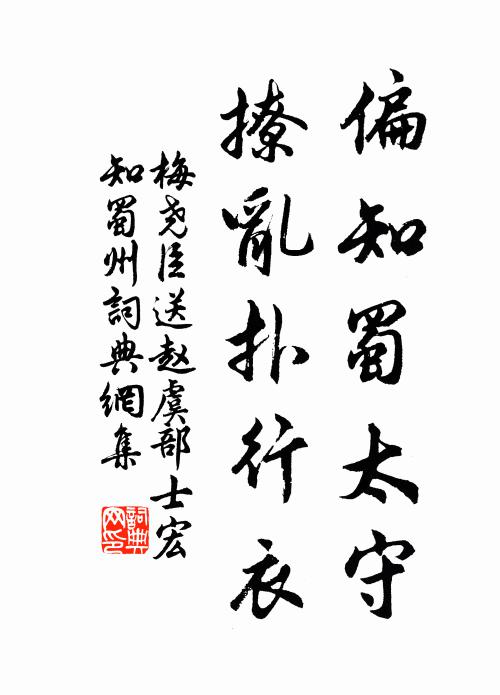 偏知蜀太守
撩亂扑行衣
梅尧臣送赵虞部士宏
知蜀州詞典網集
詞典网印